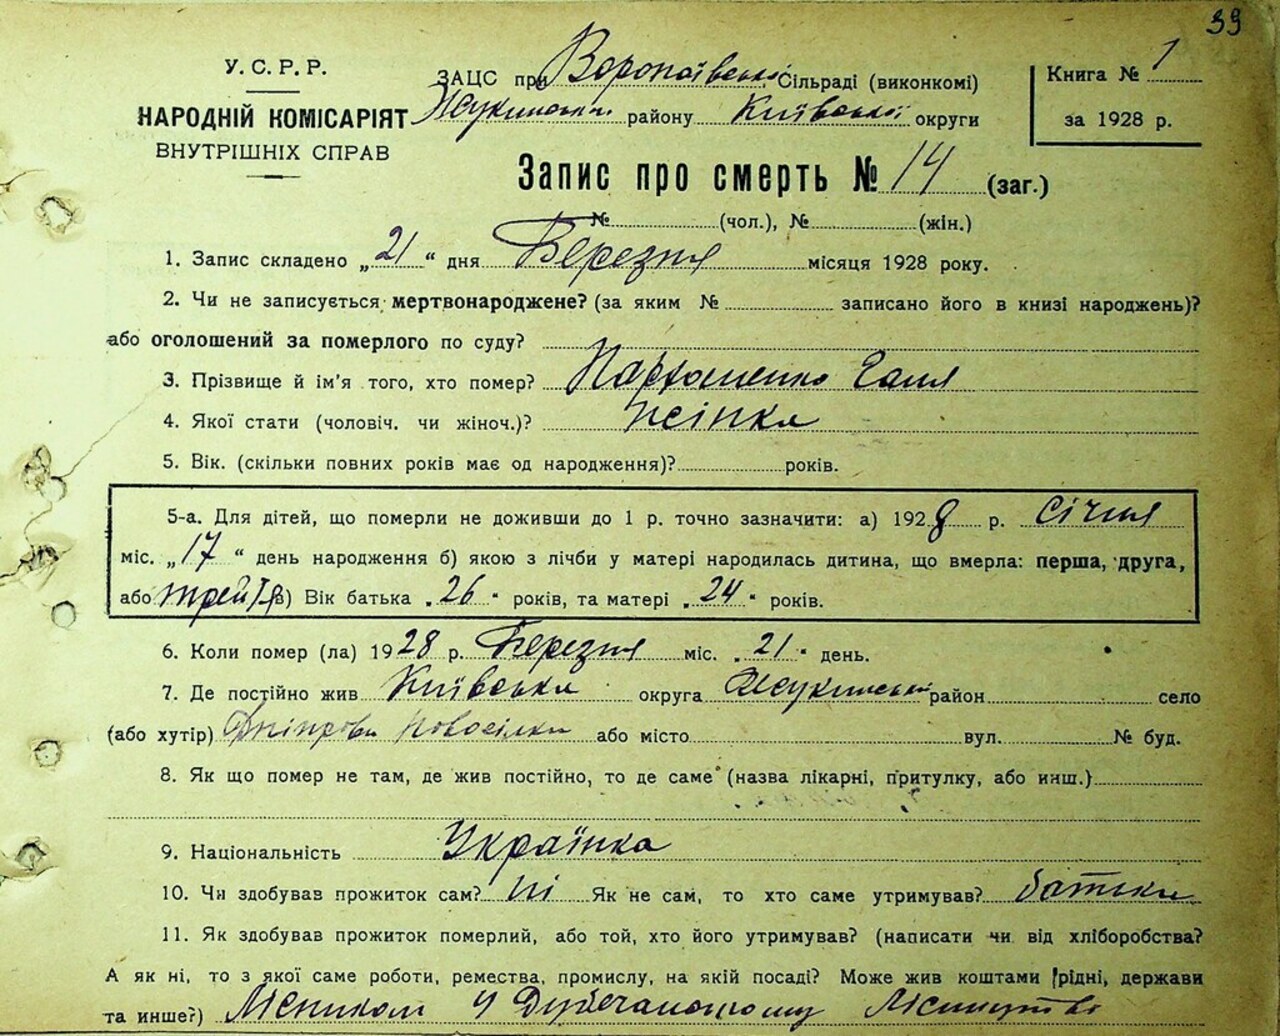 39
У.С.Р.Р.
НАРОДНІЙ КОМІСАРІЯТ
ВНУТРІШНІХ СПРАВ
ЗАЦС при Воропаївські Сільраді (виконкомі)
Жукинськи району Київської округи
Книга № 1
за 1928 р.
Запис про смерть № 14 (заг.)
№ (чол.), № (жін.)
1. Запис складено „21“ дня Березня місяця 1928 року.
2. Чи не записується мертвонароджене? (за яким № записано його в книзі народжень)?
або оголошений за померлого по суду?
3. Прізвище й ім'я того, хто помер? Пархоменко Галя
4. Якої стати (чоловіч. чи жіноч.)? Жінка
5. Вік. (скільки повних років має од народження)? років.
5-а. Для дітей, що померли не доживши до 1 р. точно зазначити: а) 1928 р. Січня
міс. „17“ день народження б) якою з лічби у матері народилась дитина, що вмерла: перша, друга,
або трейтя в) Вік батька „26“ років, та матері „24“ років.
6. Коли помер (ла) 1928 р. Березня міс. „21“ день.
7. Де постійно жив Київська округа Жукинський район село
(або хутір) Дніпрови Новосілки або місто вул. № буд.
8. Як що помер не там, де жив постійно, то де саме (назва лікарні, притулку, або инш.)
9. Національність Українка
10. Чи здобував прожиток сам? Ні Як не сам, то хто саме утримував? батьки
11. Як здобував прожиток померлий, або той, хто його утримував? (написати чи від хліборобства?
А як ні, то з якої саме роботи, ремества, промислу, на якій посаді? Може жив коштами рідні, держави
та инше?) Лісником у Дубечанському Лісництві